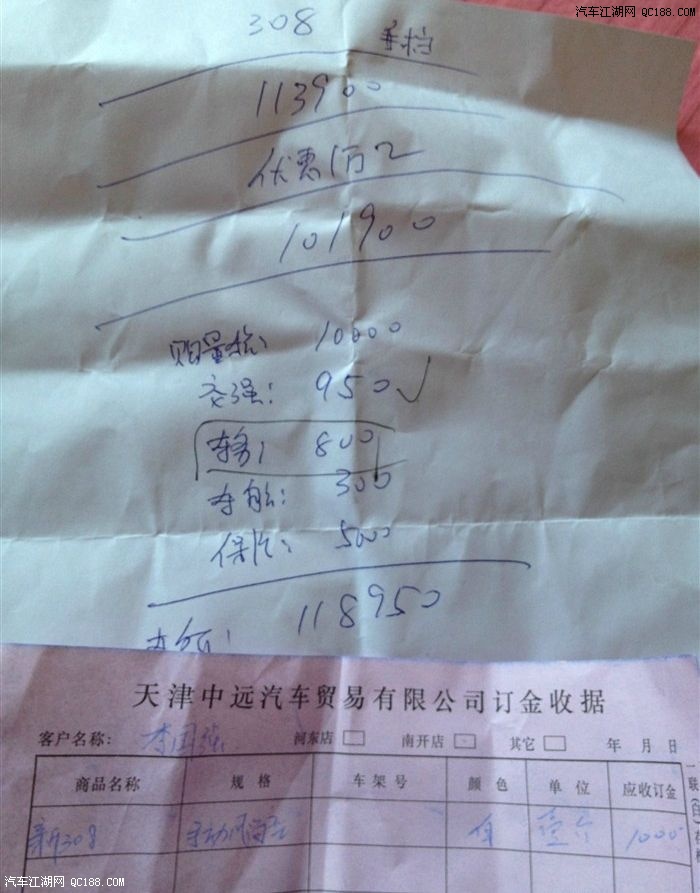 汽车江湖网 QC188.COM
308 手档
113900
优惠1万2
101900
购置税: 10000
交强: 950 ✓
车务: 800
车船: 300
保险: 5000
118950
天津中远汽车贸易有限公司订金收据
客户名称: 李国强 河东店 □ 南开店 □ 其它 □ 年 月 日
商品名称 规格 车架号 颜色 单位 应收订金
新308 手动风尚 壹台 1000
汽车江湖网 QC188.COM
汽车江湖网 QC188.COM